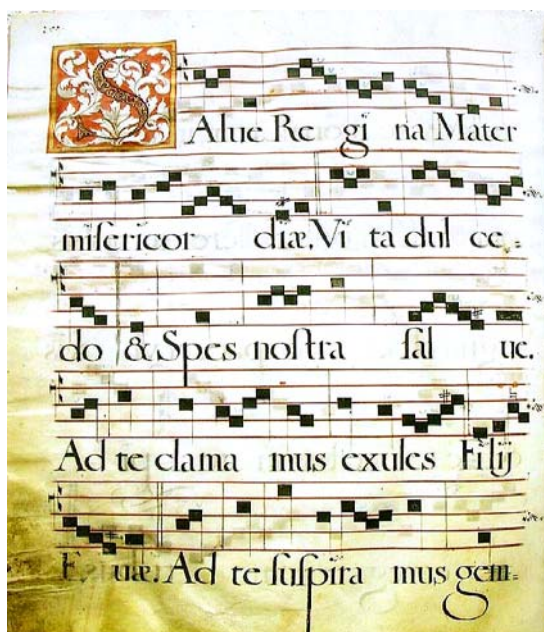 SAlue Regina Mater
misericordiæ. Vita dulce=
do & Spes nostra salue.
Ad te clamamus exules Filij
Euæ. Ad te suspiramus gem=